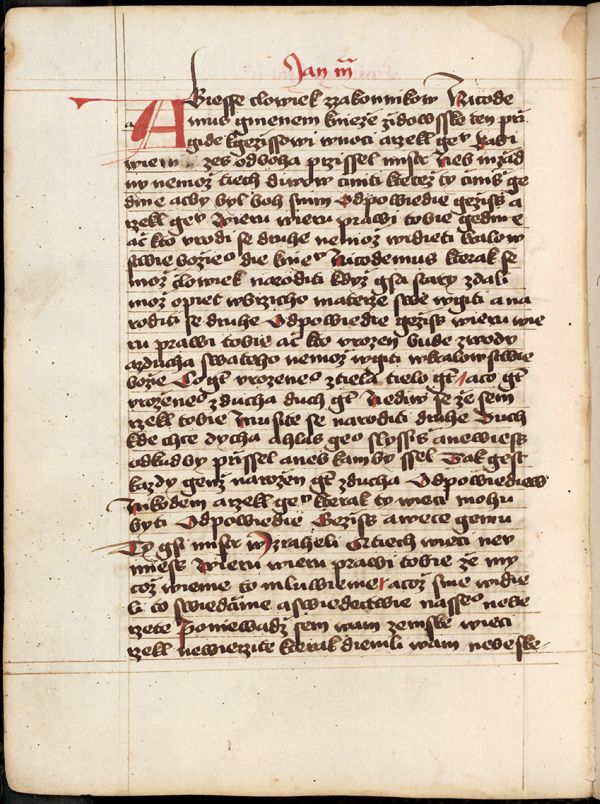 Jan iii
A Biesse clowiek zzakonnikow Nicode
mus gmenem knieze zidowsske ten prji
gide kgezissowi wnoci a rzekl gey Rabi
wiem zes odboha przissel mistr nebizad
ny nemoz tiech diwow ciniti kterez ty cinis ge
dine acby byl boh snim Odpowiedie gezis a
rzekl gey Wieru wieru prawi tobie gedine
ac kto vrodi se druhe nemoz widieti kralow
stwie bozieo die kniey Nicodemus kterak se
moz clowiek naroditi kdyz gsa stary zdali
moz opiet wbrzicho materze swe wgiti a na
roditi se druhe Odpowiedie gezis wieru wie
ru prawi tobie ac kto vrozen bude zwody
azducha swateho nemoz wgiti wkralowstwie
bozie Co gt vrozeneo ztiela tielo gt iaco gt
vrozeneo zducha duch gt Nediw se ze sem
rzekl tobie Musite se naroditi druhe Duch
kde chce dycha ahlas geo slyssis anewies
odkud by prissel aneb kam by ssel Tak gest
kazdy genz narozen gt zducha Odpowiediew
nikodem arzekl gey kterak ty wieci mohu
byti Odpowiedie Gezis awece gemu
Ty gsi mistr wyzraheli Atiech wieci new
miess Wieru wieru prawi tobie ze my
coz wieme to mluwieme acoz sme widie
li to swiedcime aswiedectwie nasseo nebe
rzete Poniewadz sem wam zemske wieci
rzekl newierzite kterak diemli wam nebeske